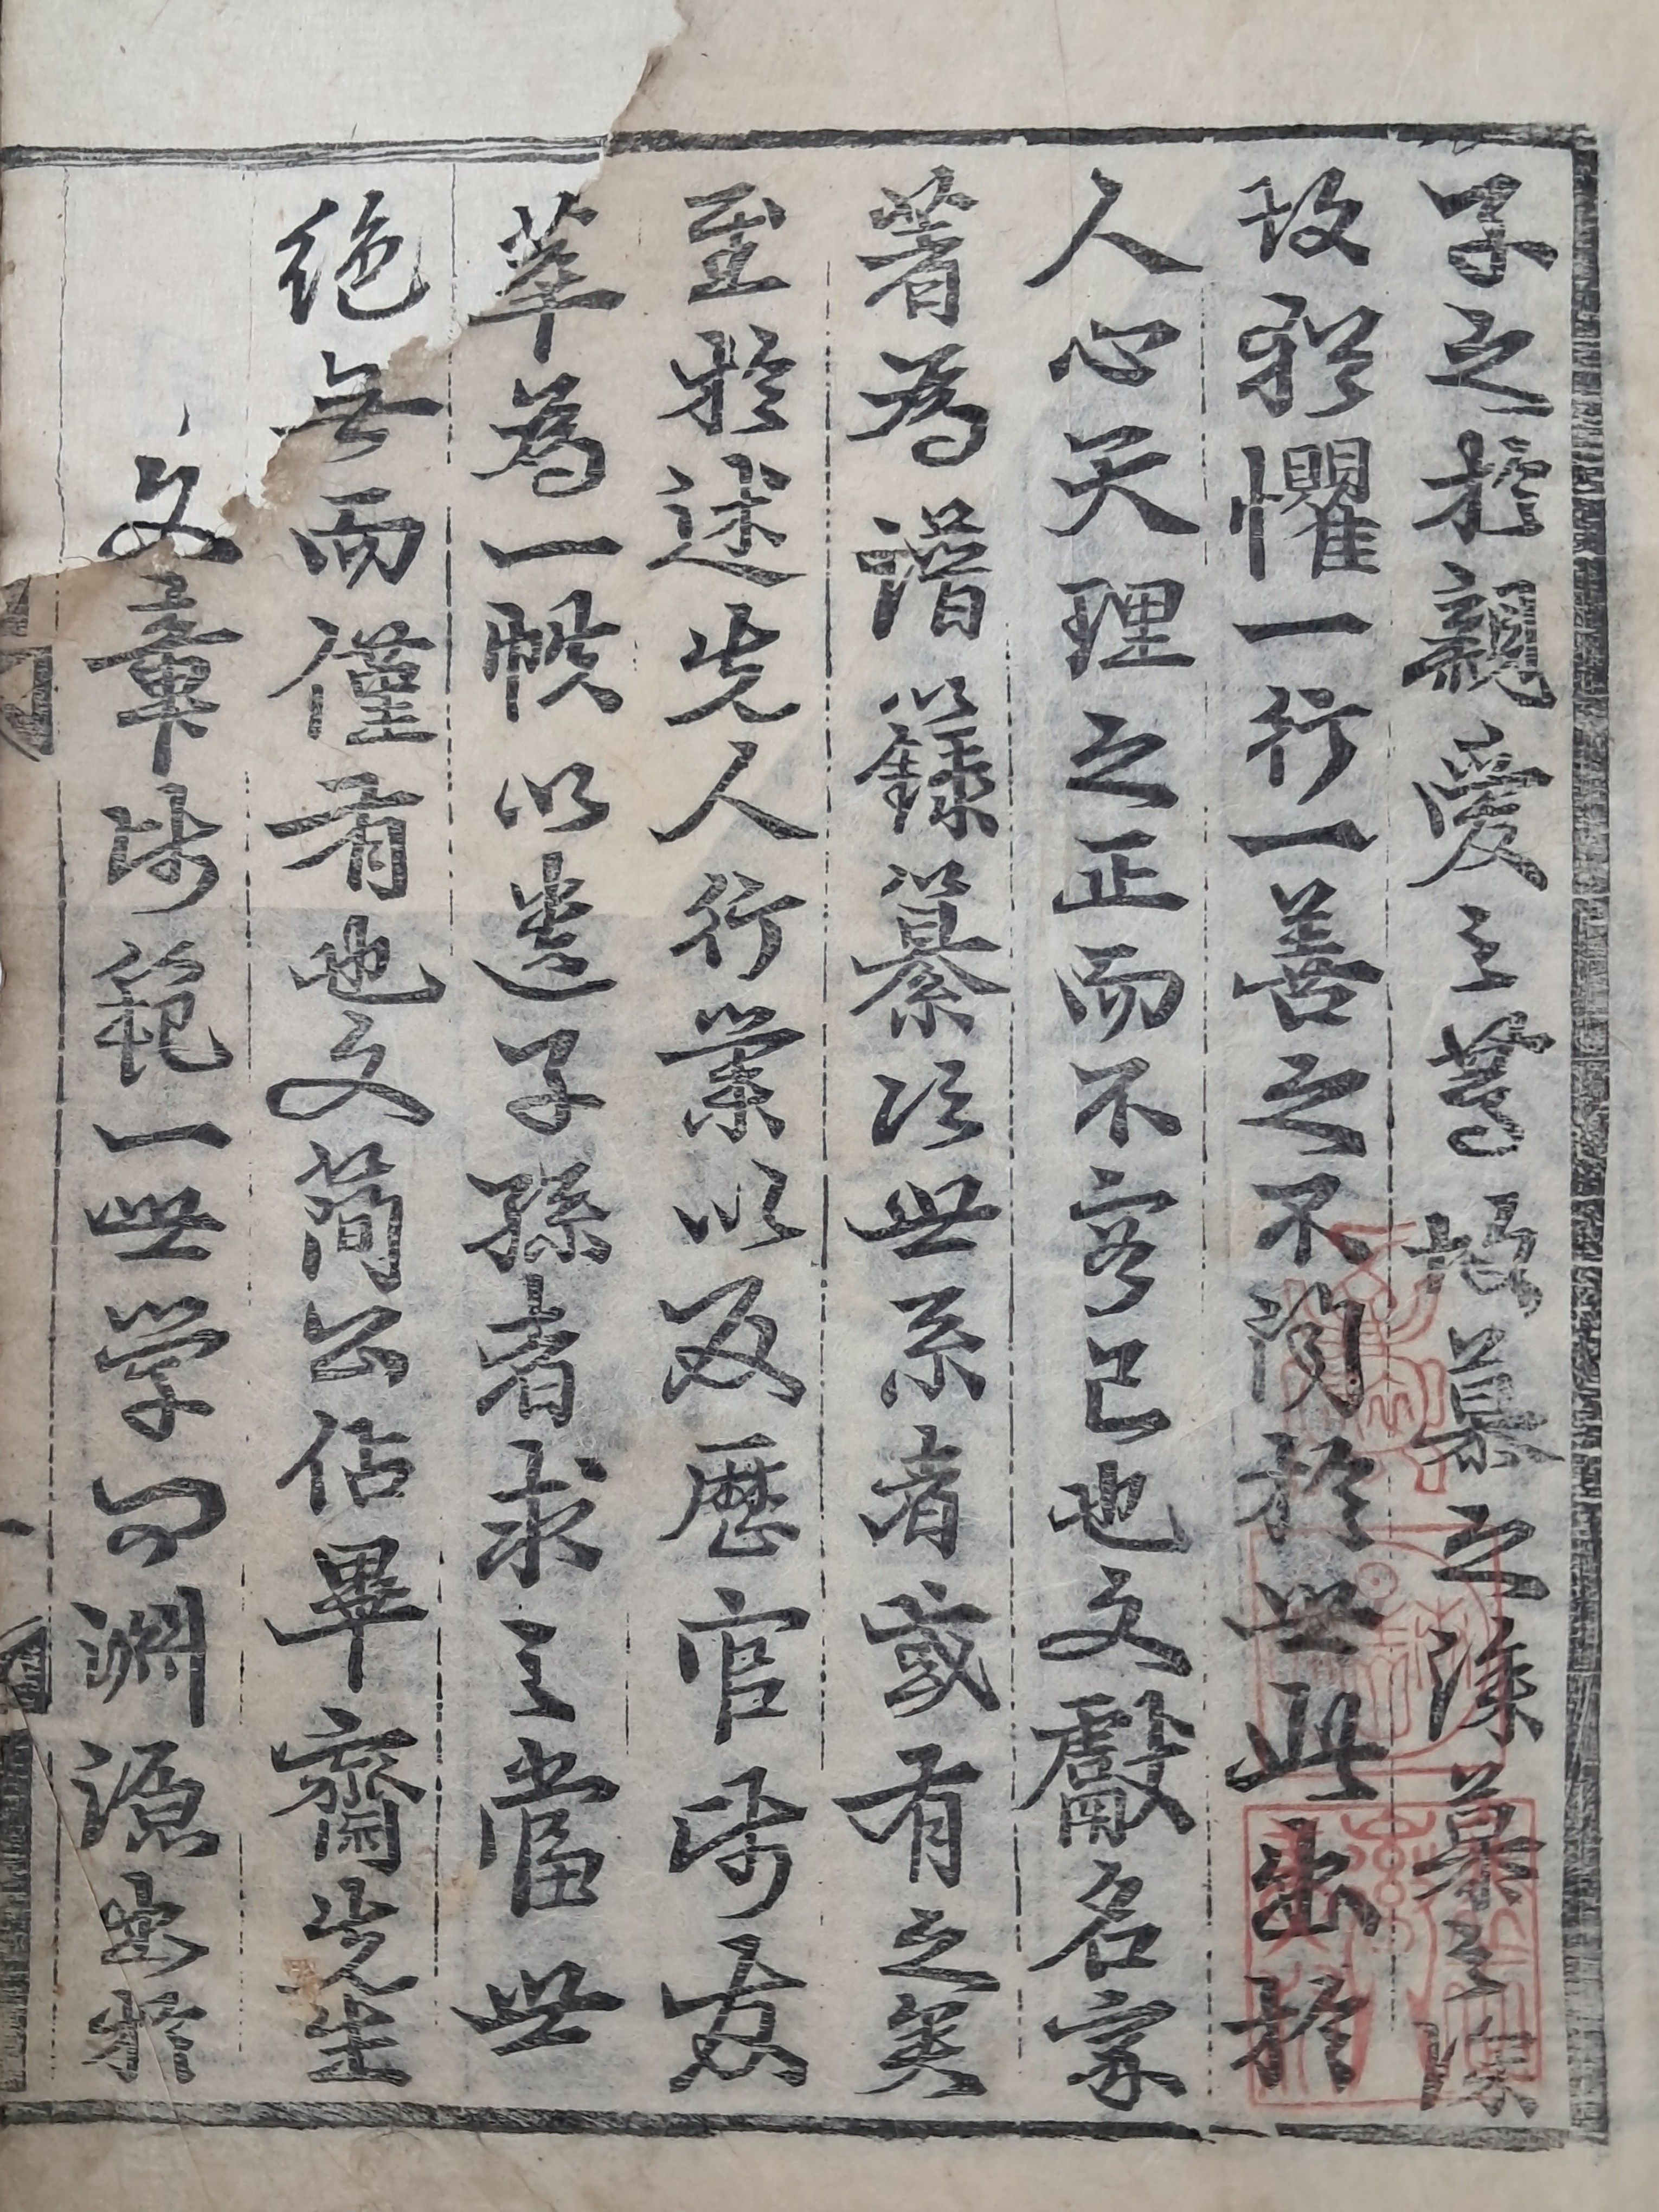 子之於親愛之甚故慕之深慕之深
故猶懼一行一善之不聞於世此出於
人心天理之正而不容已也文獻名家
著為譜錄纂次世系者或有之矣
至於述先人行業以及歷官師友
萃為一帙以遺子孫者求之當世
絶無而僅有也文簡公佔畢齋先生
文章師範一世学問淵源出於